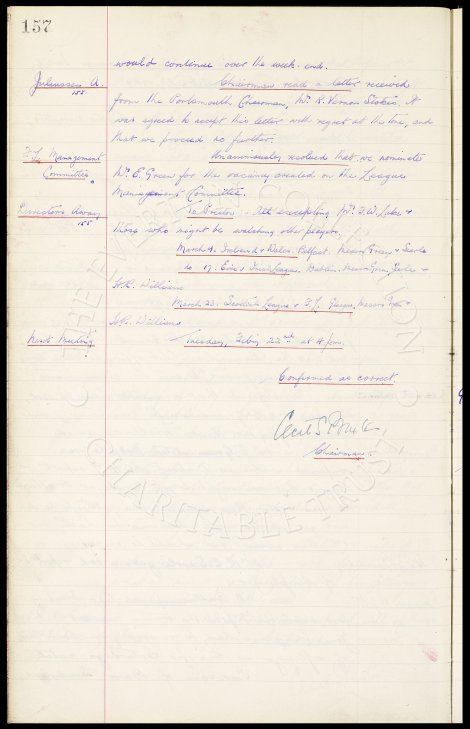 157
would continue over the week-end.
Juliussen A.
155
Chairman read a letter received
from the Portsmouth Chairman, Mr. R. Vernon Stokes. It
was agreed to accept this letter with regret at the tone, and
that we proceed no further.
F.L. Management
Committee.
Unanimously resolved that we nominate
Mr. E. Green for the vacancy created on the League
Management Committee.
Directors Away
155
To Preston - All excepting Mr. F.W. Lake &
those who might be watching other players,
March 9. Ireland v Wales. Belfast. Messrs &
to 17. Eire v Irish League. Dublin. Messrs &
W.R. Williams
March 23. Scottish League v F.L. Glasgow, Messrs &
W.R. Williams
Next Meeting
Tuesday, Feb'y 22nd at 4 p.m.
Confirmed as correct.
Cecil S.
Chairman
THE EVERTON COLLECTION
CHARITABLE TRUST